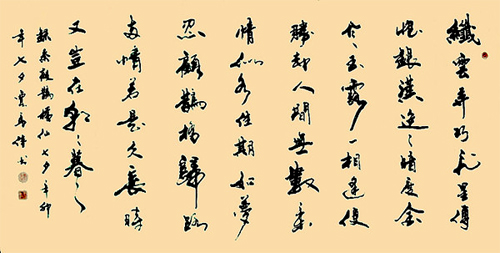 纖雲弄巧飛星傳
恨銀漢迢々暗度金
風玉露一相逢便
勝却人間無數柔
情似水佳期如夢
忍顧鵲橋歸路
兩情若是久長時
又豈在朝々暮々
錄秦觀鵲橋仙七夕辛卯
年七夕書